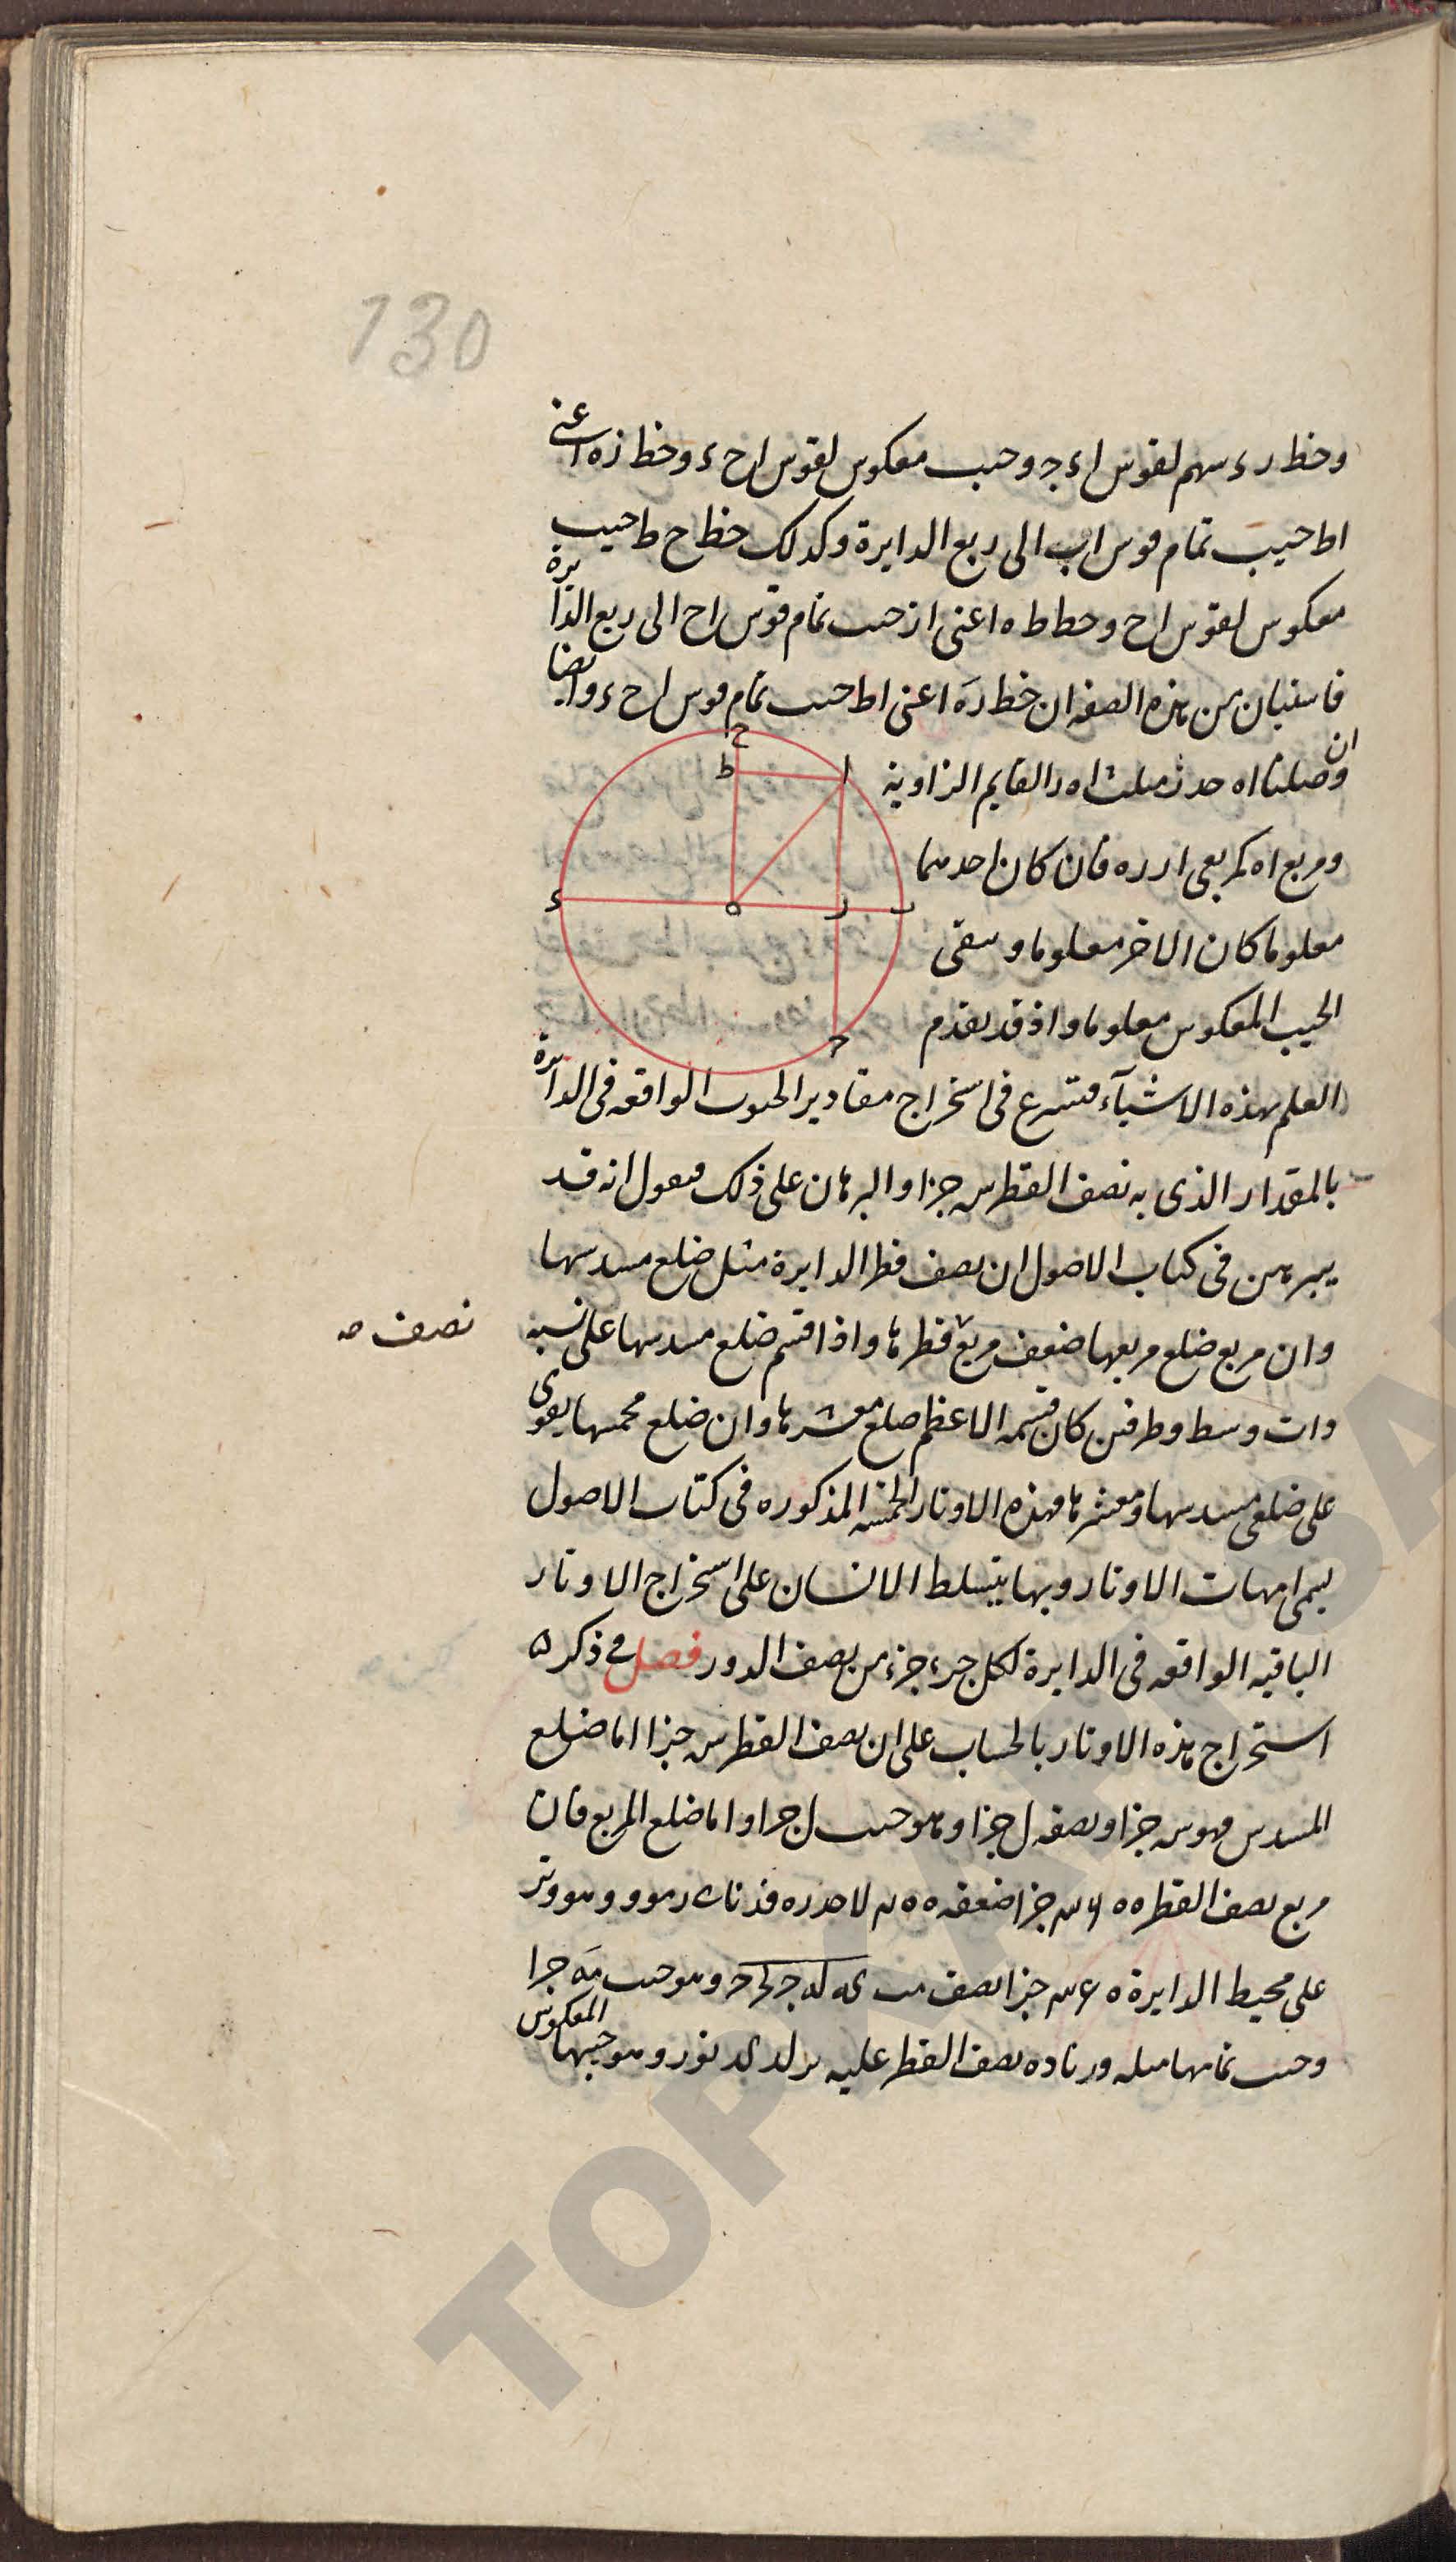 130
وخط رء سهم لقوس اء جـ وحىب معكوس لقوس اح ء وخط زه اعنى
اط جيب تمام قوس اب الى ربع الدايرة وكذلك خط ح ط جيب
معكوس لقوس اح وخط ط ه اعنى از حىب تمام قوس اح الى ربع الدايرة
فاستبان من هذه الصفه ان خط ره اعنى اط حىب تمام قوس اح ء وايضا
ان وصلنا اه حدث مثلث اه ر القايم الزاوية
ومربع اه كمربعى ار ره فان كان احدهما
معلوما كان الاخر معلوما وىبقى
الجيب المعكوس معلوما واذ قد تقدم
العلم بهذه الاشيآء فنشرع فى استخراج مقادير الجيوب الواقعه فى الدايرة
بالمقدار الذى به نصف القطر س جزا والبرهان على ذلك فنقول انه قد
يبرهن فى كتاب الاصول ان نصف قطر الدايرة مثل ضلع مسدسها
وان مربع ضلع مربعها ضعف مربع قطرها واذا قسم ضلع مسدسها على نسبة
نصف صه
ذات وسط وطرفين كان قسمه الاعظم ضلع معشرها وان ضلع مخمسها يقوى
على ضلعى مسدسها ومعشرها فهذه الاوتار الخمسه المذكوره فى كتاب الاصول
يسمى امهات الاوتار وبها يتسلط الانسان على استخراج الاوتار
الباقيه الواقعه فى الدايرة لكل جزء جزء من نصف الدور فصل فى ذكر
استخراج هذه الاوتار بالحساب على ان نصف القطر س جزا اما ضلع
المسدس فهو س جزا ونصفه ل جزا وهو حىب ل جزا واما ضلع المربع فان
مربع نصف القطر جزا ضعفه وهو وتر
على محيط الدايرة جزا نصف وهو حىب مه جزا
وحىب تمامها مثله وزيادة نصف القطر عليه وهو جيبها المعكوس
ح
ط
ا
ء
ه
ر
ب
ج
TOPKAPI SA